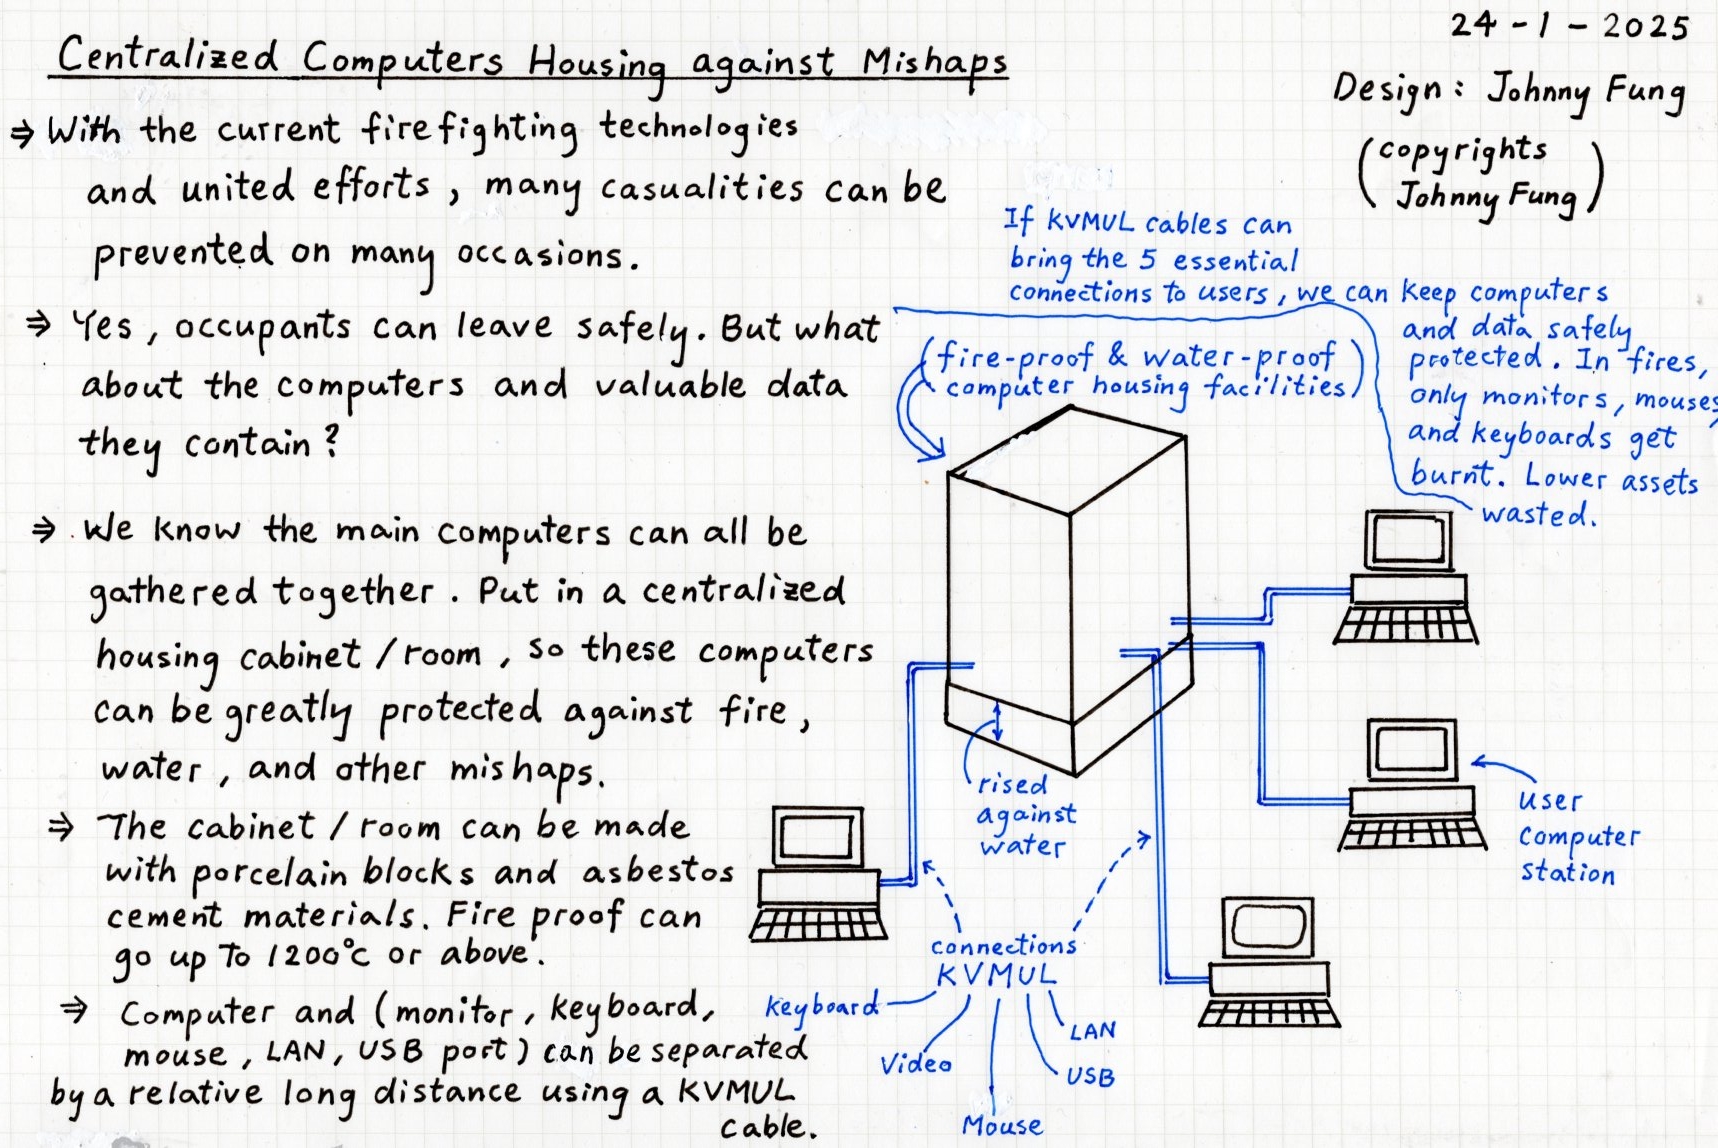 24 - 1 - 2025
Centralized Computers Housing against Mishaps
Design : Johnny Fung
(copyrights
Johnny Fung)
⇒ With the current firefighting technologies
and united efforts, many casualities can be
prevented on many occasions.
⇒ Yes, occupants can leave safely. But what
about the computers and valuable data
they contain?
⇒ We know the main computers can all be
gathered together. Put in a centralized
housing cabinet / room, so these computers
can be greatly protected against fire,
water, and other mishaps.
⇒ The cabinet / room can be made
with porcelain blocks and asbestos
cement materials. Fire proof can
go up to 1200°c or above.
⇒ Computer and (monitor, keyboard,
mouse, LAN, USB port) can be separated
by a relative long distance using a KVMUL
cable.
If KVMUL cables can
bring the 5 essential
connections to users, we can keep computers
and data safely
protected. In fires,
only monitors, mouses,
and keyboards get
burnt. Lower assets
wasted.
(fire-proof & water-proof
computer housing facilities)
rised
against
water
user
computer
station
connections
KVMUL
keyboard
Video
Mouse
USB
LAN